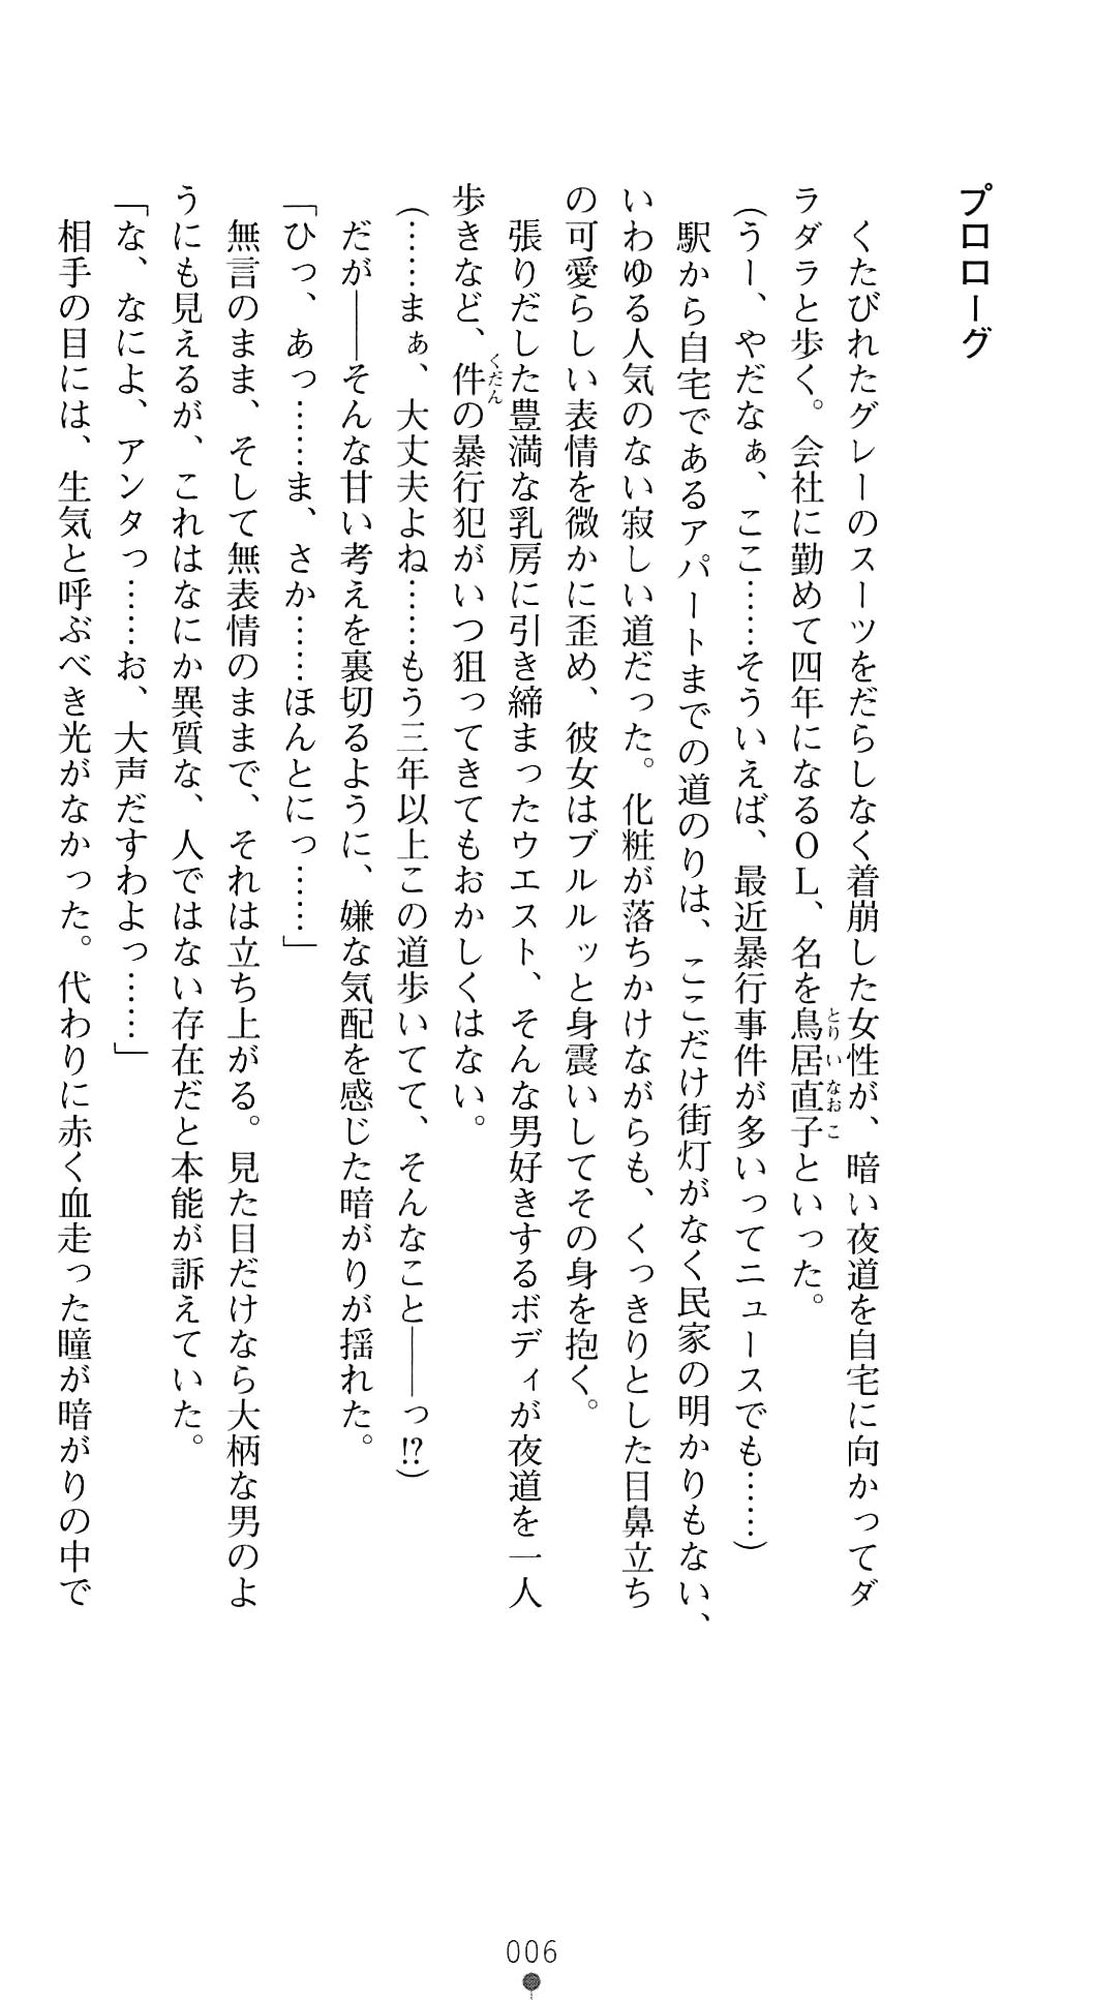 プロローグ
くたびれたグレーのスーツをだらしなく着崩した女性が、暗い夜道を自宅に向かってダ
ラダラと歩く。会社に勤めて四年になるＯＬ、名を鳥居直子といった。
とりいなおこ
(うー、やだなぁ、ここ……そういえば、最近暴行事件が多いってニュースでも……)
駅から自宅であるアパートまでの道のりは、ここだけ街灯がなく民家の明かりもない、
いわゆる人気のない寂しい道だった。化粧が落ちかけながらも、くっきりとした目鼻立ち
の可愛らしい表情を微かに歪め、彼女はブルルッと身震いしてその身を抱く。
張りだした豊満な乳房に引き締まったウエスト、そんな男好きするボディが夜道を一人
歩きなど、件の暴行犯がいつ狙ってきてもおかしくはない。
くだん
(……まぁ、大丈夫よね……もう三年以上この道歩いてて、そんなこと――っ!?)
だが――そんな甘い考えを裏切るように、嫌な気配を感じた暗がりが揺れた。
「ひっ、あっ……ま、さか……ほんとにっ……」
無言のまま、そして無表情のままで、それは立ち上がる。見た目だけなら大柄な男のよ
うにも見えるが、これはなにか異質な、人ではない存在だと本能が訴えていた。
「な、なによ、アンタっ……お、大声だすわよっ……」
相手の目には、生気と呼ぶべき光がなかった。代わりに赤く血走った瞳が暗がりの中で
006